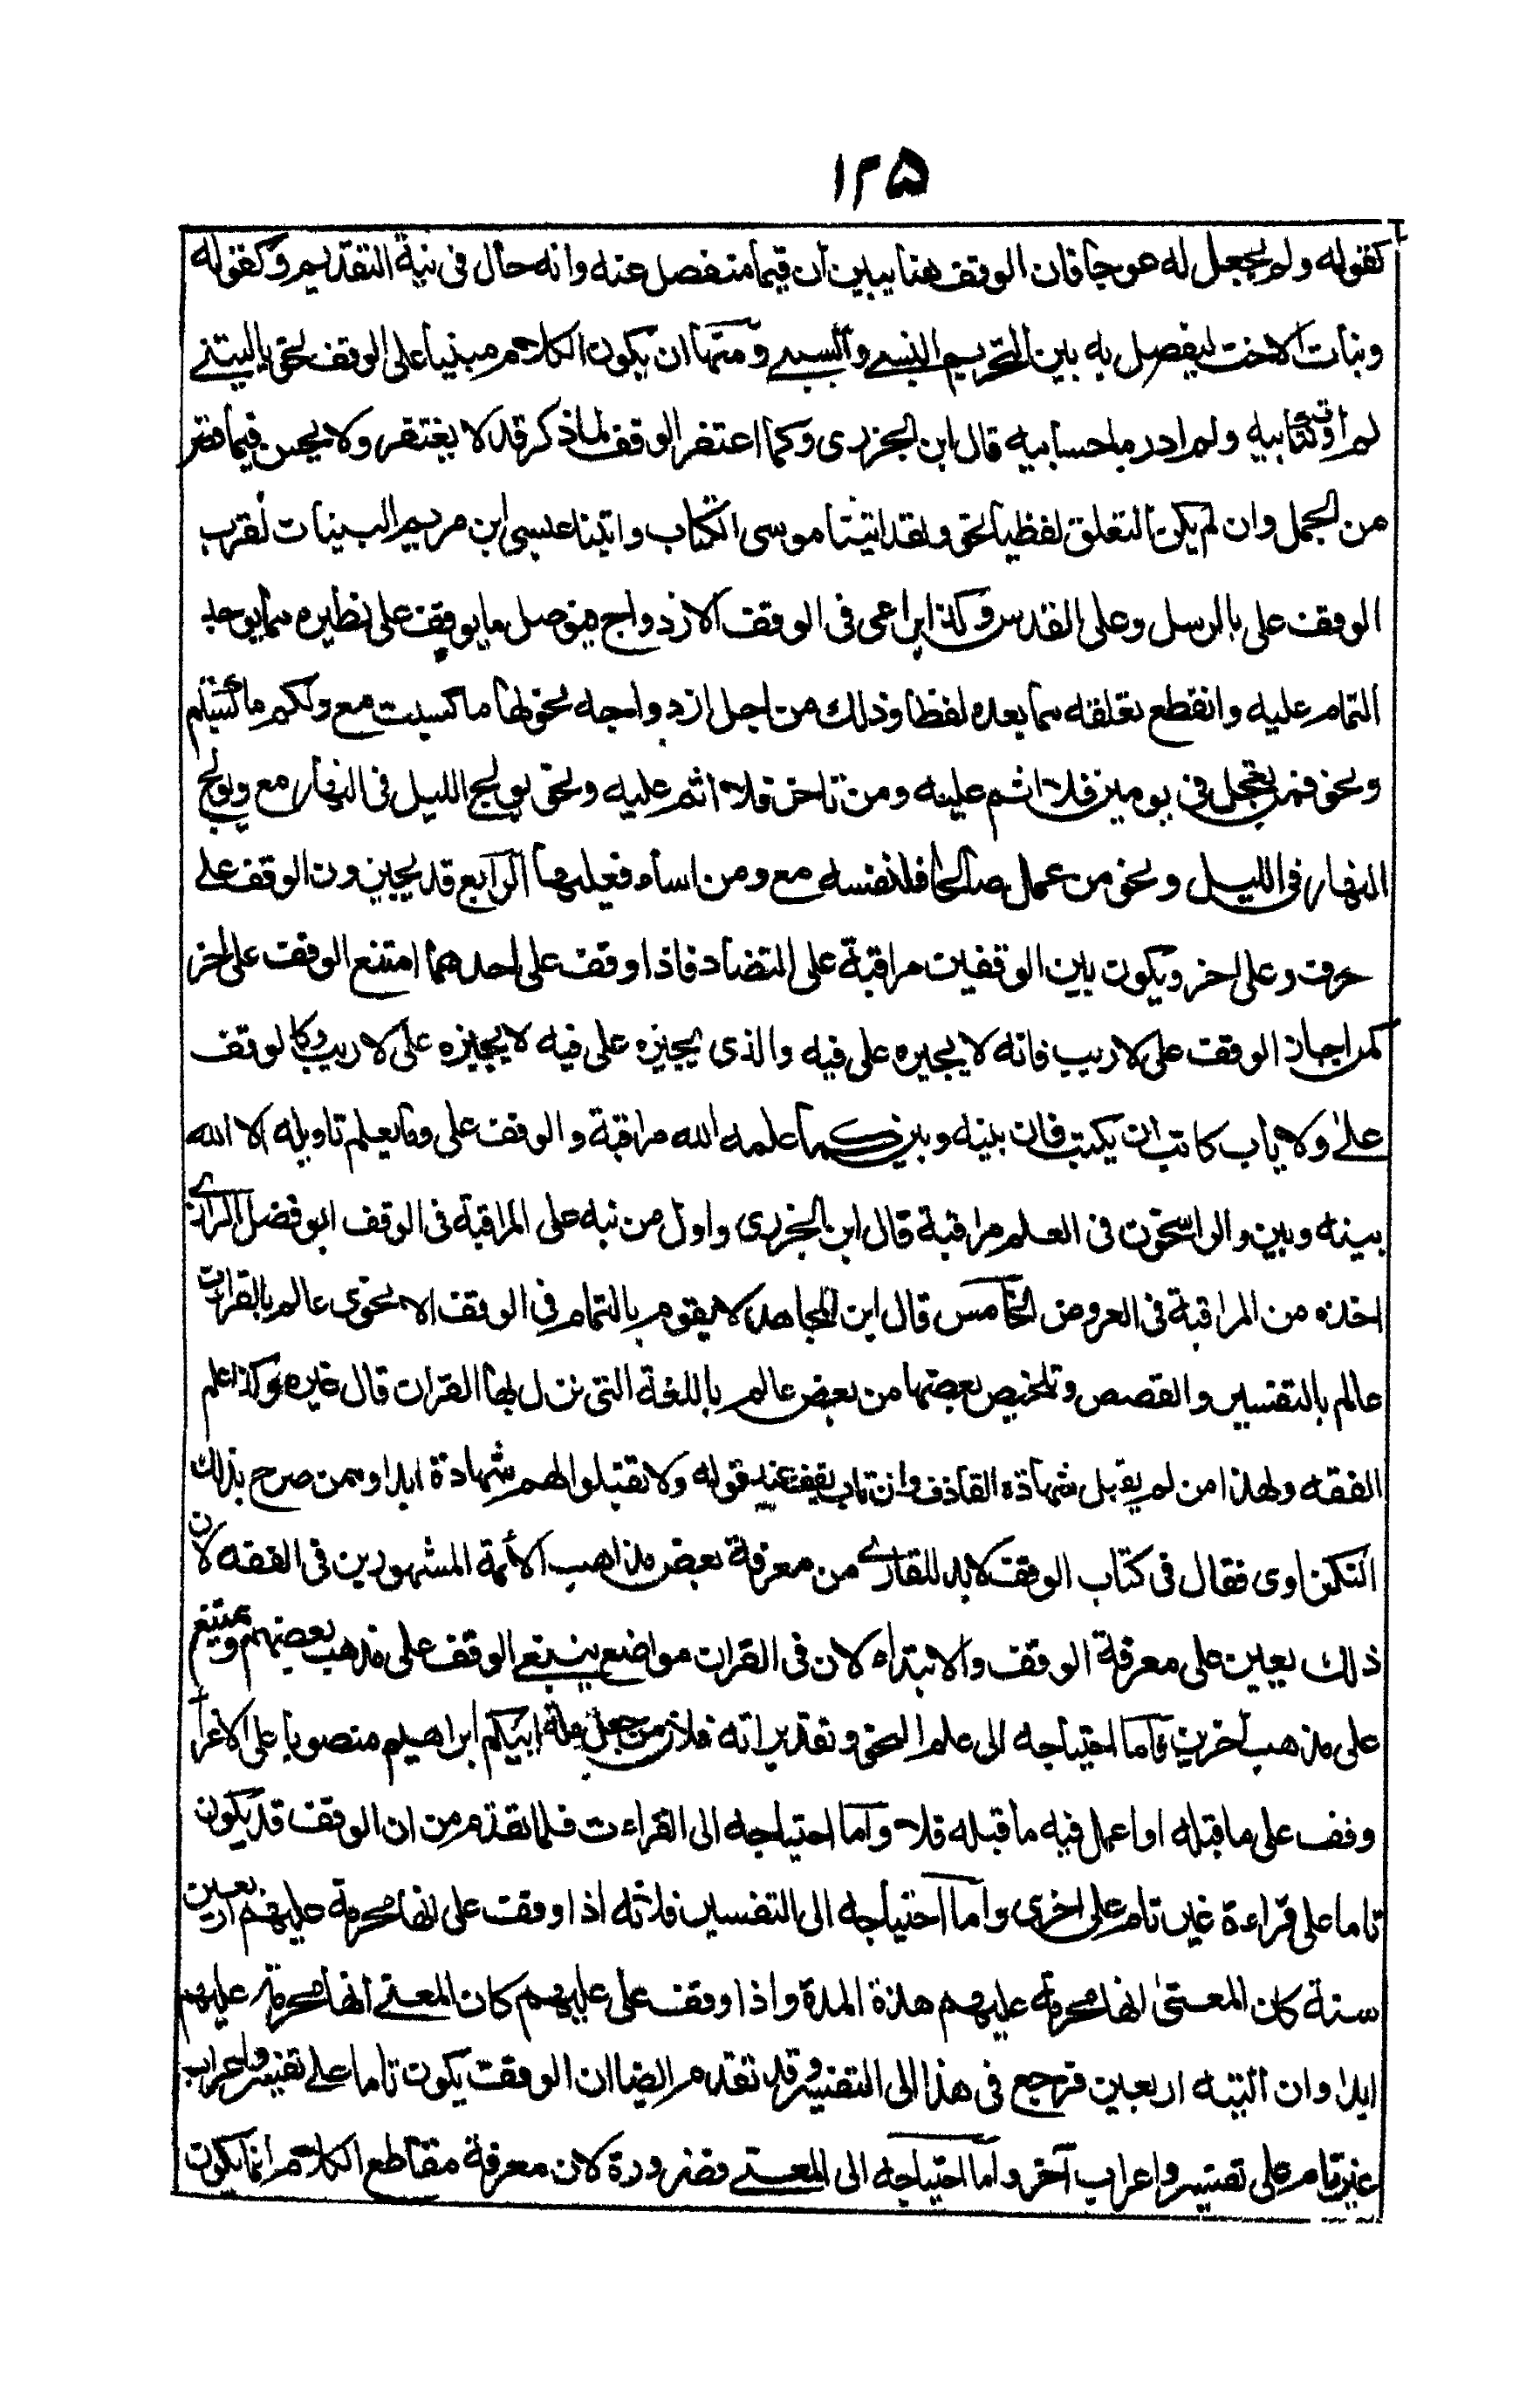 ١٢٥
كقوله ولم يجعل له عوجا فان الوقف هنا يبين ان قيما منفصل عنه وانه حال فى نية التقديم وكقوله
وبنات الاخت ليفصل به بين التحريم النسبے والسببے ومنها ان يكون الكلام مبنيا على الوقف نحو ياليتنے
لم اوت كتابيه ولم ادر ما حسابيه قال ابن الجزرى وكما اغتفر الوقف لما ذكر قد لا يغتفر ولا يحسن فيما قصر
من الجمل وان لم يكن التعلق لفظيا نحو ولقد اتينا موسى الكتاب واتينا عيسى ابن مريم البينات لقرب
الوقف على بالرسل وعلى القدس وكذا يراعى فى الوقف الازدواج فيوصل ما يوقف على نظيره مما يوجد
التمام عليه وانقطع تعلقه بما بعده لفظا وذلك من اجل ازدواجه نحو لها ما كسبت مع ولكم ما كسبتم
ونحو فمن تعجل فى يومين فلا اثم عليه ومن تاخر فلا اثم عليه ونحو يولج الليل فى النهار مع ويولج
النهار فى الليل ونحو من عمل صالحا فلنفسه مع ومن اساء فعليها الرابع قد يجيزون الوقف على
حرف وعلى اخر ويكون بين الوقفين مراقبة على التضاد فاذا وقف على احدهما امتنع الوقف على اخر
كمن اجاز الوقف على لا ريب فانه لا يجيزه على فيه والذى يجيزه على فيه لا يجيزه على لا ريب وكالوقف
على ولا ياب كاتب ان يكتب فان بينه وبين كما علمه الله مراقبة والوقف على وما يعلم تاويله الا الله
بينه وبين والراسخون فى العلم مراقبة قال ابن الجزرى واول من نبه على المراقبة فى الوقف ابو فضل الرازے
اخذه من المراقبة فى العروض الخامس قال ابن المجاهد لا يقوم بالتمام فى الوقف الا نحوى عالم بالقراءت
عالم بالتفسير والقصص وتلخيص بعضها من بعض عالم باللغة التى نزل بها القران قال غيره وكذا علم
الفقه ولهذا من لم يقبل شهادة القاذف وان تاب يقف عند قوله ولا تقبلوا لهم شهادة ابدا وممن صرح بذلك
النكزاوى فقال فى كتاب الوقف لا بد للقارے من معرفة بعض مذاهب الأئمة المشهورين فى الفقه لان
ذلك يعين على معرفة الوقف والابتداء لان فى القران مواضع ينبغے الوقف على مذهب بعضهم ويمتنع
على مذهب اخرين فاما احتياجه الى علم النحو وتقديراته فلان من جعل ملة ابيكم ابراهيم منصوبا على الاغرا
وقف على ما قبله او اعمل فيه ما قبله فلا واما احتياجه الى القراءت فلما تقدم من ان الوقف قد يكون
تاما على قراءة غير تام على اخرى واما احتياجه الى التفسير فلانه اذا وقف على انها محرمة عليهم اربعين
سنة كان المعنى انها محرمة عليهم هذه المدة واذا وقف على عليهم كان المعنے انها محرمة عليهم
ابدا وان التيه اربعين فرجع فى هذا الى التفسير وقد تقدم ايضا ان الوقف يكون تاما على تفسير واعراب
غير تام على تفسير واعراب آخر واما احتياجه الى المعنے فضرورة لان معرفة مقاطع الكلام انما يكون